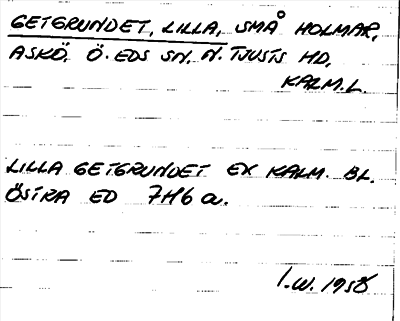 GETGRUNDET, LILLA, SMÅ HOLMAR,
ASKÖ, Ö. EDS SN, N. TJUSTS HD,
KALM.L.
LILLA GETGRUNDET EK KALM. BL.
ÖSTRA ED 7H6a.
I.W. 1958